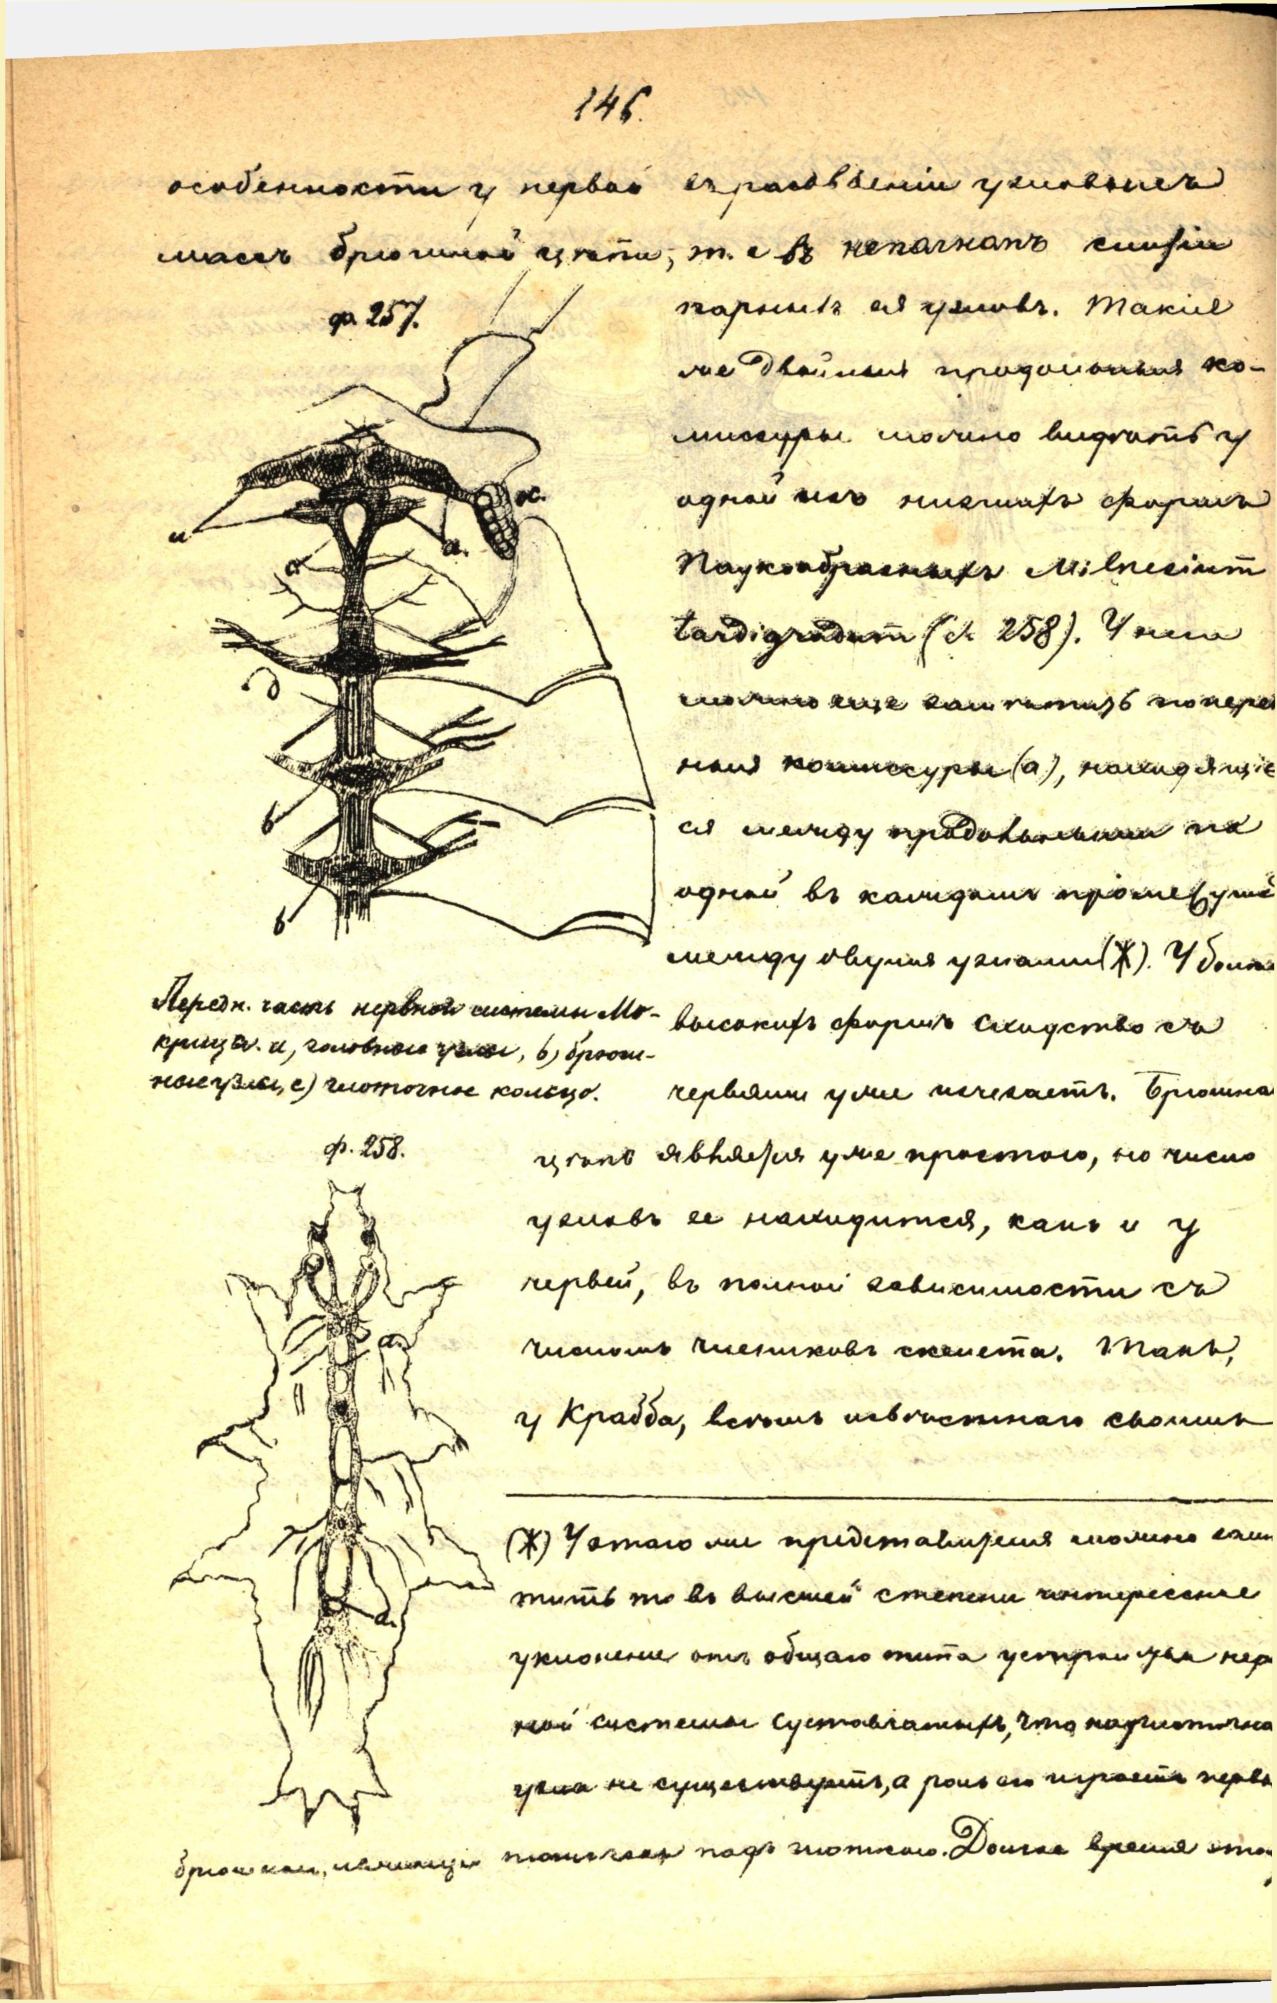 146.
особенности у первой въ раздвоеніи узловыхъ
массъ брюшной цѣпи, т. е въ неполномъ слитіи
ф. 257.
парныхъ ея узловъ. Такія
же двойныя продольныя ко-
миссуры можно видѣть у
одной изъ низшихъ формъ
Паукообразныхъ Milnesium
tardigradum (ф. 258). У нея
можно еще замѣтить попереч
ныя комиссуры (а), находящіе
ся между продольными по
одной въ каждомъ промежутк
между двумя узлами (Ж). У болѣе
высокихъ формъ сходство съ
червями уже исчезаетъ. Брюшная
цѣпь является уже простою, но число
узловъ ее находится, какъ и у
червей, въ полной зависимости съ
числомъ члениковъ скелета. Такъ,
у Крабба, всѣмъ извѣстнаго своимъ
а
c.
a.
d
д
b
b
Передн. часть нервной системы Мо-
крицы. а, головные узлы, b) брюш-
ные узлы, c) глоточное кольцо.
ф. 258.
a.
a.
(Ж) У этого же представителя можно замѣ
тить то въ высшей степени интересное
уклоненіе отъ общаго типа устройства нер
ной системы Суставчатыхъ, что надглоточна
узла не существуетъ, а роль его играетъ первы
брюшной, лежащій подъ глоткою. Долгое время это